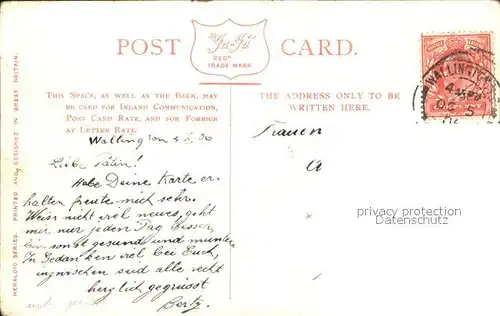 POST CARD.
"Ja-Ja"
REGD
TRADE MARK
THIS SPACE, AS WELL AS THE BACK, MAY
BE USED FOR INLAND COMMUNICATION,
POST CARD RATE, AND FOR FOREIGN
AT LETTER RATE.
THE ADDRESS ONLY TO BE
WRITTEN HERE.
HERALDIC SERIES. PRINTED AND DESIGNED IN GREAT BRITAIN.
WALLINGTON
Wallington 4 X 06
Liebe Tätin!
Habe Deine Karte er-
halten freute mich sehr.
Weiss nicht viel neues, geht
mir nur jeden Tag besser,
bin sonst gesund und munter.
In Gedanken viel bei Euch,
inzwischen seid alle recht
herzlich gegrüsst
Berty
Frauen
a
privacy protection